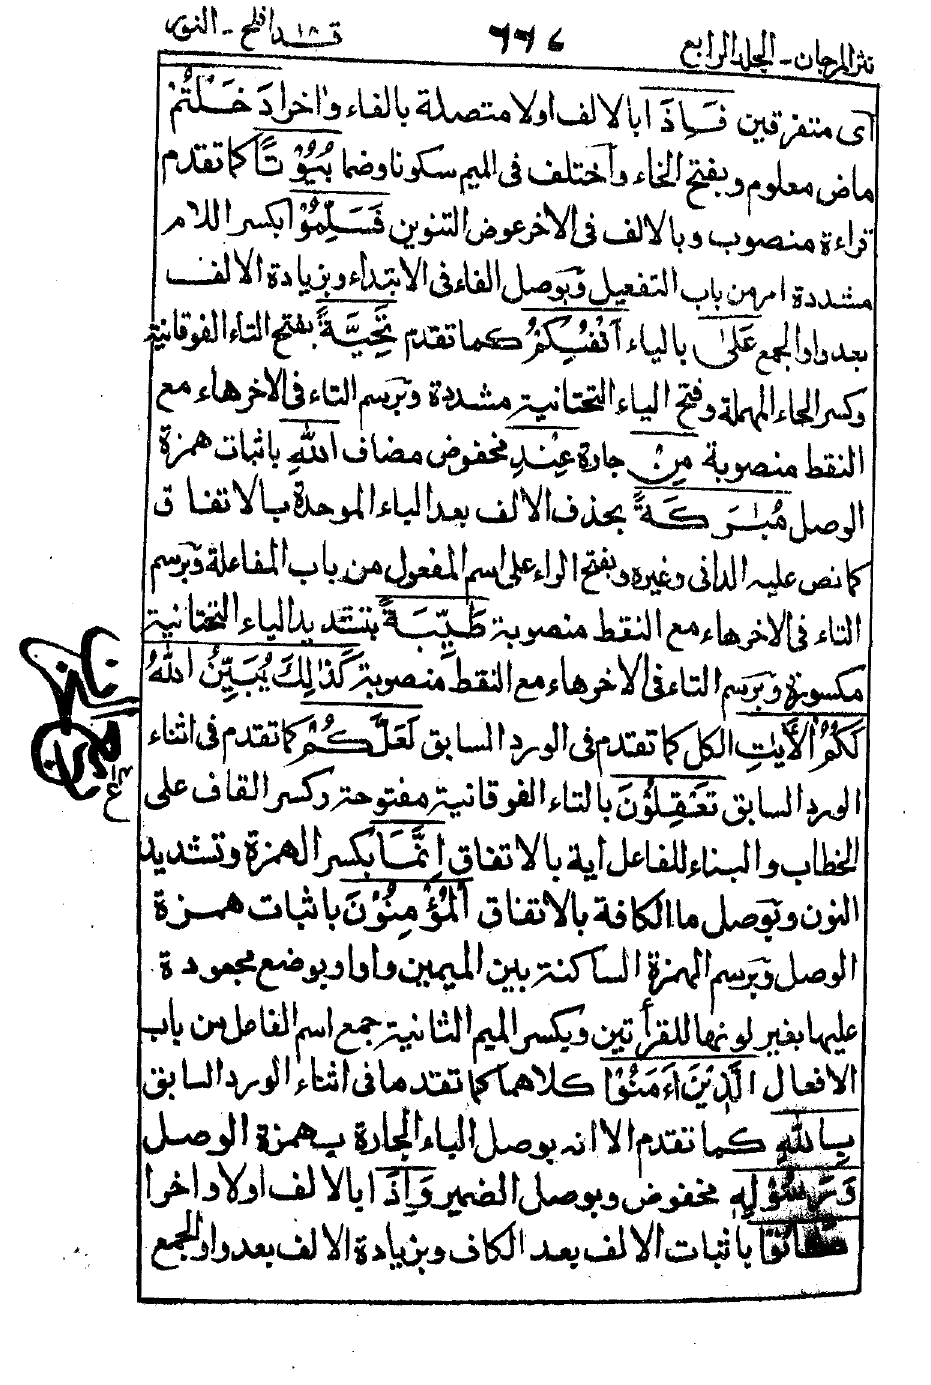 نثر المرجان - الجلد الرابع ٦٦٧ قد افلح ١٨ - النور
اى متفرقين فَاِذَا بالالف اولا متصلة بالفاء واخرا دَخَلْتُمْ
ماض معلوم وبفتح الخاء وآختلف فى الميم سكونا وضما بُيُوْتًا كما تقدم
قراءة منصوب وبالالف فى الاخر عوض التنوين فَسَلِّمُوْا بكسر اللام
مشددة امر من باب التفعيل وبوصل الفاء فى الابتداء وبزيادة الالف
بعد واو الجمع عَلٰى بالياء اَنْفُسِكُمْ كما تقدم تَحِيَّةً بفتح التاء الفوقانية
وكسر الحاء المهملة وفتح الياء التحتانية مشددة وبرسم التاء فى الاخر هاء مع
النقط منصوبة مِنْ جارة عِنْدِ مخفوض مضاف اللّٰهِ باثبات همزة
الوصل مُبٰرَكَةً بحذف الالف بعد الباء الموحدة بالاتفاق
كما نص عليه الدانى وغيره وبفتح الراء على اسم المفعول من باب المفاعلة وبرسم
التاء فى الاخر هاء مع النقط منصوبة طَيِّبَةً بتشديد الياء التحتانية
مكسورة وبرسم التاء فى الاخر هاء مع النقط منصوبة كَذٰلِكَ يُبَيِّنُ اللّٰهُ
لَكُمُ الْاٰيٰتِ الكل كما تقدم فى الورد السابق لَعَلَّكُمْ كما تقدم فى اثناء
الورد السابق تَعْقِلُوْنَ بالتاء الفوقانية مفتوحة وكسر القاف على
الخطاب والبناء للفاعل اية بالاتفاق اِنَّمَا بكسر الهمزة وتشديد
النون وبوصل ما الكافة بالاتفاق الْمُؤْمِنُوْنَ باثبات همزة
الوصل وبرسم الهمزة الساكنة بين الميمين واوا وبوضع مجعودة
عليها بغير لونها للقرأتين وبكسر الميم الثانية جمع اسم الفاعل من باب
الافعال الَّذِيْنَ اٰمَنُوْا كلاهما كما تقدما فى اثناء الورد السابق
بِاللّٰهِ كما تقدم الا انه بوصل الباء الجارة بهمزة الوصل
وَرَسُوْلِهٖ مخفوض وبوصل الضمير وَاِذَا بالالف اولا واخرا
كَانُوْا باثبات الالف بعد الكاف وبزيادة الالف بعد واو الجمع